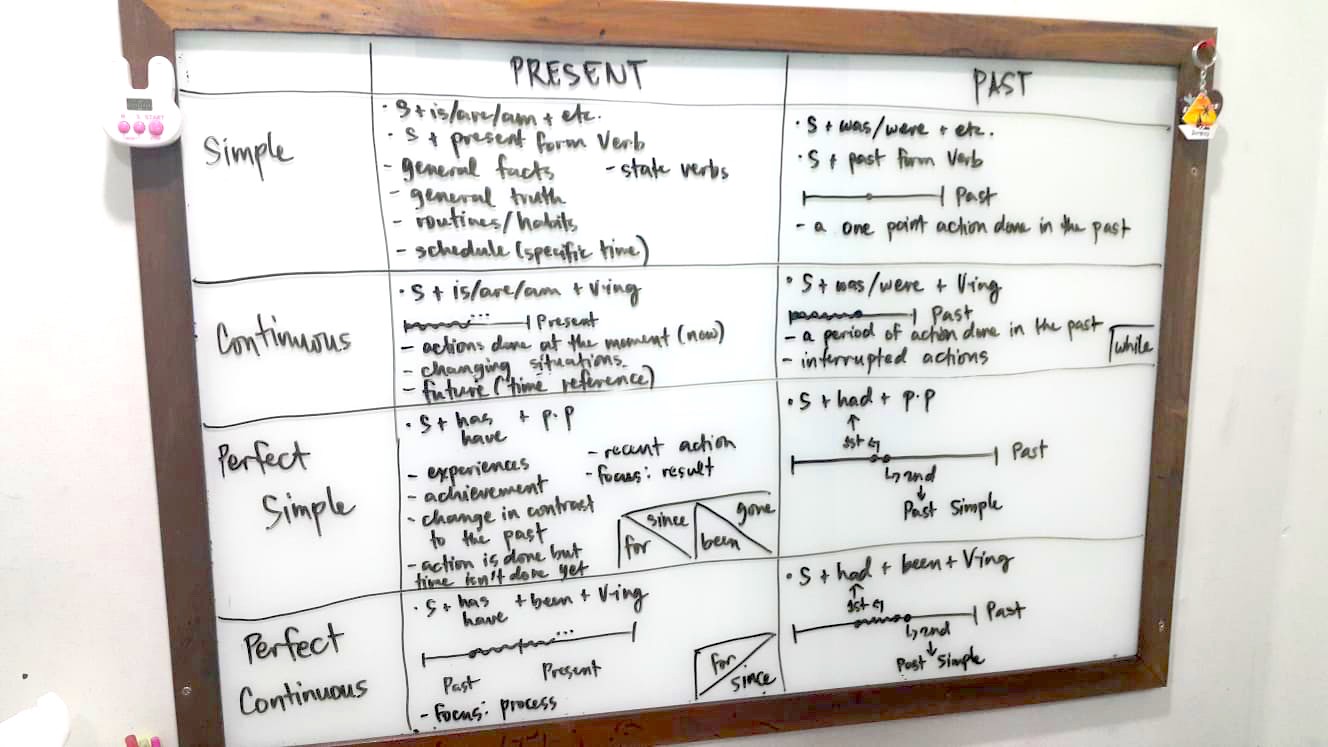 PRESENT
PAST
Simple
· S + is/are/am + etc.
· S + present form Verb
- general facts
- state verbs
- general truth
- routines/habits
- schedule (specific time)
· S + was/were + etc.
· S + past form Verb
Past
- a one point action done in the past
Continuous
· S + is/are/am + V-ing
... Present
- actions done at the moment (now)
- changing situations.
- future (time reference)
· S + was/were + V-ing
Past
- a period of action done in the past
- interrupted actions
while
Perfect
Simple
· S + has + p.p
have
- experiences
- achievement
- change in contrast
to the past
- action is done but
time isn't done yet
- recent action
- focus: result
since
for
gone
been
· S + had + p.p
↑
1st ↵
Past
↳ 2nd
↓
Past Simple
Perfect
Continuous
· S + has + been + V-ing
have
...
Past
Present
- focus: process
for
since
· S + had + been + V-ing
↑
1st ↵
Past
↳ 2nd
↓
Past Simple
START